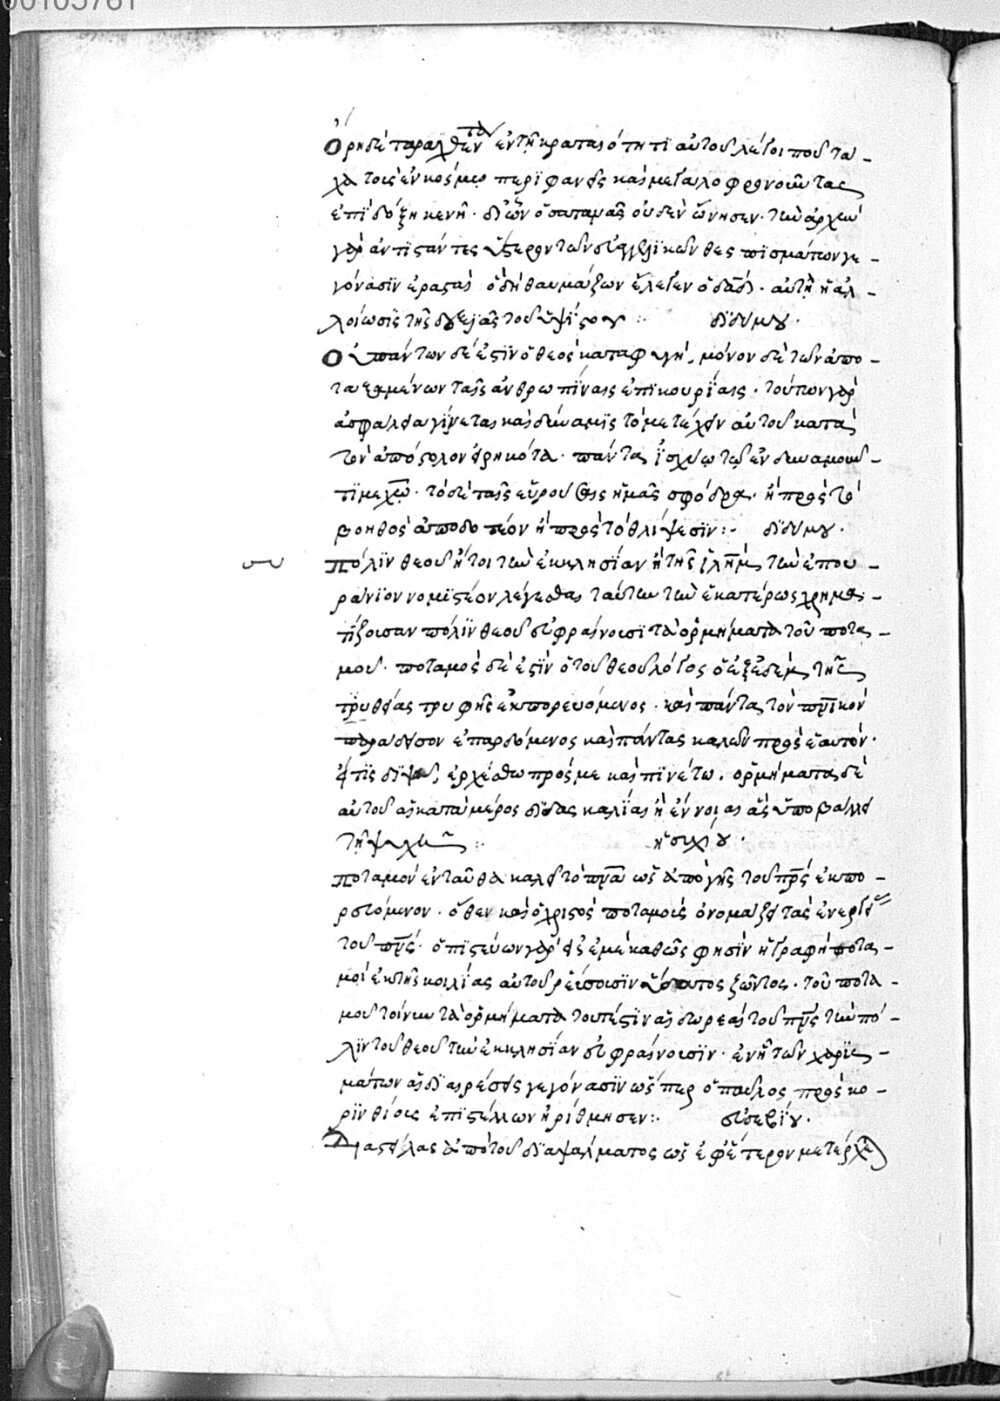 ὄρη δὲ ταραχθέντα ἐν τῇ κραταιότητι αὐτοῦ λέγοι που τά-
χα τοὺς ἐν κόσμῳ περιφανεῖς καὶ μεγαλοφρονοῦντας
ἐπὶ δόξῃ κενῇ. δι' ὧν ὁ σατανᾶς οὐδὲν ὤνησεν. τῶν ἀρχῶν
γὰρ ἀντιστάντες ὕστερον τῶν εὐαγγελικῶν θεσπισμάτων γε-
γόνασιν ἐρασταί ὃ δὴ θαυμάζων ἔλεγεν ὁ δαδ. αὕτη ἡ ἀλ-
λοίωσις τῆς δεξιᾶς τοῦ ὑψίστου :- διδύμου.
Πάντων δέ ἐστιν ὁ θεὸς καταφυγή, μόνον δὲ τῶν ἀπο-
ταξαμένων ταῖς ἀνθρωπίναις ἐπικουρίαις. τούτων γὰρ
ἀσφάλεια γίνεται καὶ δύναμις τὸ μετέχειν αὐτοῦ κατὰ
τὸν ἀπόστολον εἰρηκότα. πάντα ἰσχύω τῷ ἐνδυναμοῦν-
τί με χῷ. τὸ δὲ ταῖς εὑρούσαις ἡμᾶς σφόδρα. ἢ πρὸς τὸ
βοηθὸς ἀποδοτέον ἢ πρὸς τὸ θλίψεσιν :- διδύμου.
πόλιν θεοῦ ἤτοι τὴν ἐκκλησίαν ἢ τὴν ἰλῆμ τὴν ἐπου-
ράνιον νομιστέον λέγεσθαι ταύτην τὴν ἑκατέρως χρημα-
τίζουσαν πόλιν θεοῦ εὐφραίνουσι τὰ ὁρμήματα τοῦ ποτα-
μοῦ. ποταμὸς δέ ἐστιν ὁ τοῦ θεοῦ λόγος ὁ ἐξ ἐδὲμ τῆς
τρυφῆς ἐκπορευόμενος. καὶ πάντα τὸν πνικὸν
παράδεισον ἐπαρδόμενος καὶ πάντας καλῶν πρὸς ἑαυτόν.
εἴ τις διψᾷ, ἐρχέσθω πρός με καὶ πινέτω. ὁρμήματα δὲ
αὐτοῦ αἱ κατὰ μέρος διδασκαλίαι ἢ ἔννοιαι ἃς ὑποβάλλει
τῇ ψυχῇ :- ἡσυχίου.
ποταμὸν ἐνταῦθα καλεῖ τὸ πνα ὡς ἀπὸ γῆς τοῦ πρς ἐκπο-
ρευόμενον. ὅθεν καὶ ὁ χριστὸς ποταμοὺς ὀνομάζει τὰς ἐνεργείας
τοῦ πνς. ὁ πιστεύων γὰρ εἰς ἐμὲ καθῶς φησὶν ἡ γραφὴ ποτα-
μοὶ ἐκ τῆς κοιλίας αὐτοῦ ῥεύσουσιν ὕδατος ζῶντος. τοῦ ποτα-
μοῦ τοίνυν τὰ ὁρμήματα τουτέστιν αἱ δωρεαὶ τοῦ πνς τὴν πό-
λιν τοῦ θεοῦ τὴν ἐκκλησίαν εὐφραίνουσιν. ἐν ᾗ τῶν χαρισ-
μάτων αἱ διαιρέσεις γεγόνασιν ὥσπερ ὁ παῦλος πρὸς κο-
ρινθίους ἐπιστέλλων ἠρίθμησεν :- εὐσεβίου.
Διαστείλας ἀπὸ τοῦ διαψάλματος ὡς ἐφ' ἕτερον μετέρχε